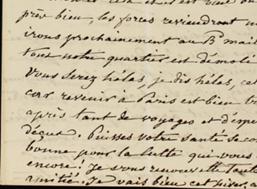 près bien, les forces reviendront
irons prochainement au Bd
tout notre quartier est démoli
Vous serez hélas, je dis hélas, cet
car revenir à Paris est bien
après tant de voyages et
déçue. Puisse votre santé se
bonne pour la lutte que vous
encore. Je vous renouvelle toute
amitié. Je vais bien cet hiver